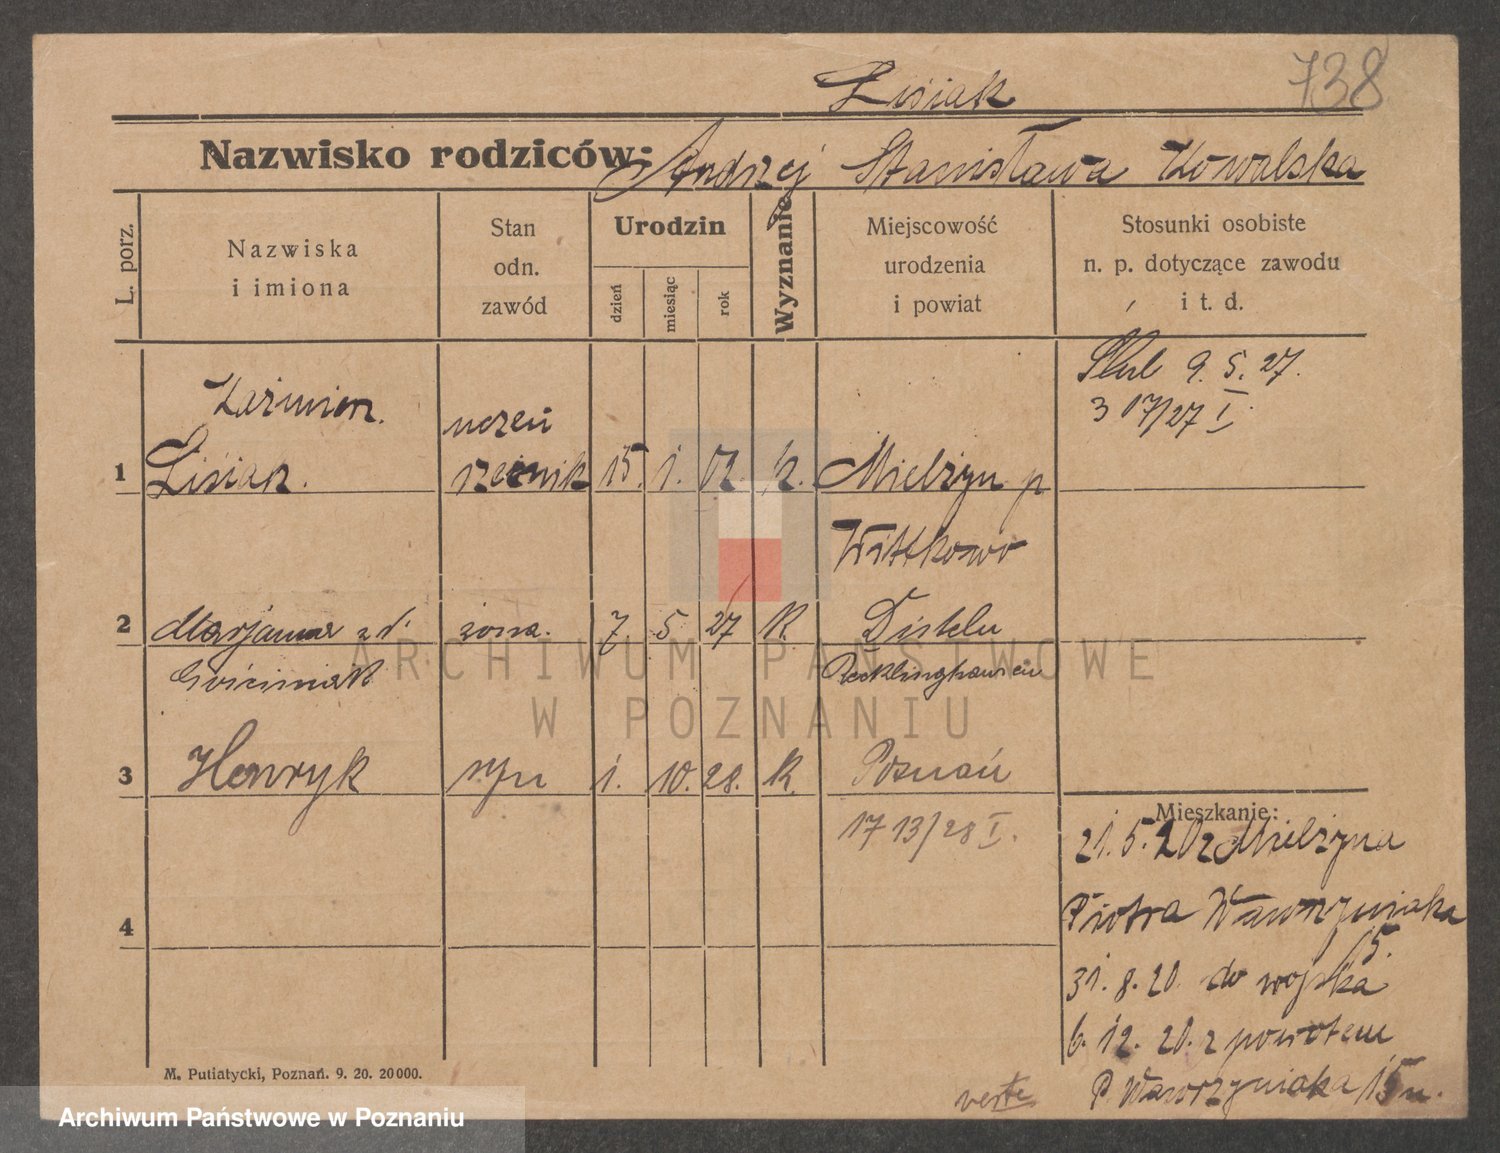 738
Lisiak
Nazwisko rodziców: Andrzej Stanisława Kowalska
L. porz.
Nazwiska
i imiona
Stan
odn.
zawód
Urodzin
dzień
miesiąc
rok
Wyznanie
Miejscowość
urodzenia
i powiat
Stosunki osobiste
n. p. dotyczące zawodu
i t. d.
Ślub 9. 5. 27.
3 17/27 I.
Kazimierz.
uczeń
1 Lisiak. rzeźnik 15. 1. 02. k. Mielżyn p
Wittkowo
2 Marjanna zd. żona. 7. 5. 27 K. Disteln
Gościniak Recklinghausen
3 Henryk syn 1. 10. 28. K. Poznań
1713/28 I.
4
Mieszkanie:
21. 5. 20 z Mielżyna
Piotra Wawrzyniaka
15.
31. 8. 20. do wojska
6. 12. 20. z powrotem
P. Wawrzyniaka 15
M. Putiatycki, Poznań. 9. 20. 20000.
verte
ARCHIWUM PAŃSTWOWE
W POZNANIU
Archiwum Państwowe w Poznaniu